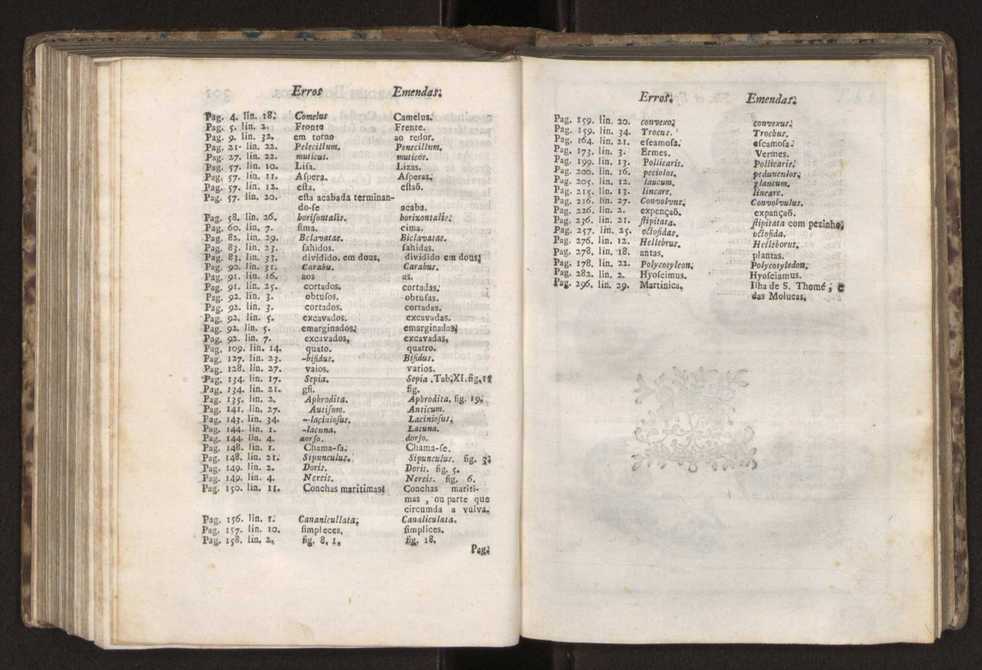 Erros Emendas.
Pag. 4. lin. 18. Comelus Camelus.
Pag. 5. lin. 2. Fronte Frente.
Pag. 9. lin. 32. em torno ao redor.
Pag. 21. lin. 22. Pelecillum. Penecillum.
Pag. 27. lin. 22. muticus. muticos.
Pag. 57. lin. 10. Lisa. Lizas.
Pag. 57. lin. 11. Aſpera. Aſperas.
Pag. 57. lin. 12. eſta. eſtaõ.
Pag. 57. lin. 20. eſta acabada terminan-
do-ſe acaba.
Pag. 58. lin. 26. boriſontalis. borixontalis.
Pag. 60. lin. 7. ſima. cima.
Pag. 82. lin. 29. Bclavatae. Biclavatae.
Pag. 83. lin. 23. ſahidos. ſahidas.
Pag. 83. lin. 33. dividido. em dous, dividido em dous;
Pag. 90. lin. 31. Carabu. Carabus.
Pag. 91. lin. 16. aos as.
Pag. 91. lin. 25. cortados. cortadas.
Pag. 92. lin. 3. obtuſos. obtuſas.
Pag. 92. lin. 3. cortados. cortadas.
Pag. 92. lin. 5. excavados. excavadas.
Pag. 92. lin. 5. emarginados; emarginadas;
Pag. 92. lin. 7. excavados, excavadas,
Pag. 109. lin. 14. quato. quatro.
Pag. 127. lin. 23. -bifidus. Bifidus.
Pag. 128. lin. 27. vaios. varios.
Pag. 134. lin. 17. Sepia. Sepia .Tab.XI.fig.18
Pag. 134. lin. 21. gfi. fig.
Pag. 135. lin. 2. Aphrodita. Aphrodita. fig. 19.
Pag. 141. lin. 27. Autiſum. Anticum.
Pag. 143. lin. 34. -laçinioſus. Lacinioſus.
Pag. 144. lin. 1. -lacuna. Lacuna.
Pag. 144. lin. 4. aorſo. dorſo.
Pag. 148. lin. 1. Chama-ſa. Chama-ſe.
Pag. 148. lin. 21. Sipunculus. Sipunculus. fig. 3.
Pag. 149. lin. 2. Doris. Doris. fig. 5.
Pag. 149. lin. 4. Nereis. Nereis. fig. 6.
Pag. 150. lin. 11. Conchas maritimas; Conchas mariti-
mas , ou parte que
circumda a vulva.
Pag. 156. lin. 1. Cananicullata, Canaliculata.
Pag. 157. lin. 10. ſimpleces, ſimplices.
Pag. 158. lin. 2. fig. 8. 1. fig. 18.
Pag.
Erros. Emendas.
Pag. 159. lin. 20. convexo, convexus.
Pag. 159. lin. 34. Trocus. Trochus.
Pag. 164. lin. 21. eſeamoſa. eſcamoſa.
Pag. 173. lin. 3. Ermes. Vermes.
Pag. 199. lin. 13. Pollicaris. Pollicaris.
Pag. 200. lin. 16. peciolos. pedunculos.
Pag. 205. lin. 12. laucum. glaucum.
Pag. 215. lin. 13. lincare. lineare.
Pag. 216. lin. 27. Convolvus. Convolvulus.
Pag. 226. lin. 2. expençaõ. expançaõ.
Pag. 236. lin. 21. ſtipitata. ſtipitata com pezinho.
Pag. 257. lin. 25. octofidas. octofida.
Pag. 276. lin. 12. Hellebrus. Helleborus.
Pag. 278. lin. 18. antas. plantas.
Pag. 178. lin. 22. Polycotyleon. Polycotyledon.
Pag. 282. lin. 2. Hyoſcimus. Hyoſciamus.
Pag. 296. lin. 29. Martinica. Ilha de S. Thomé, e
das Molucas.